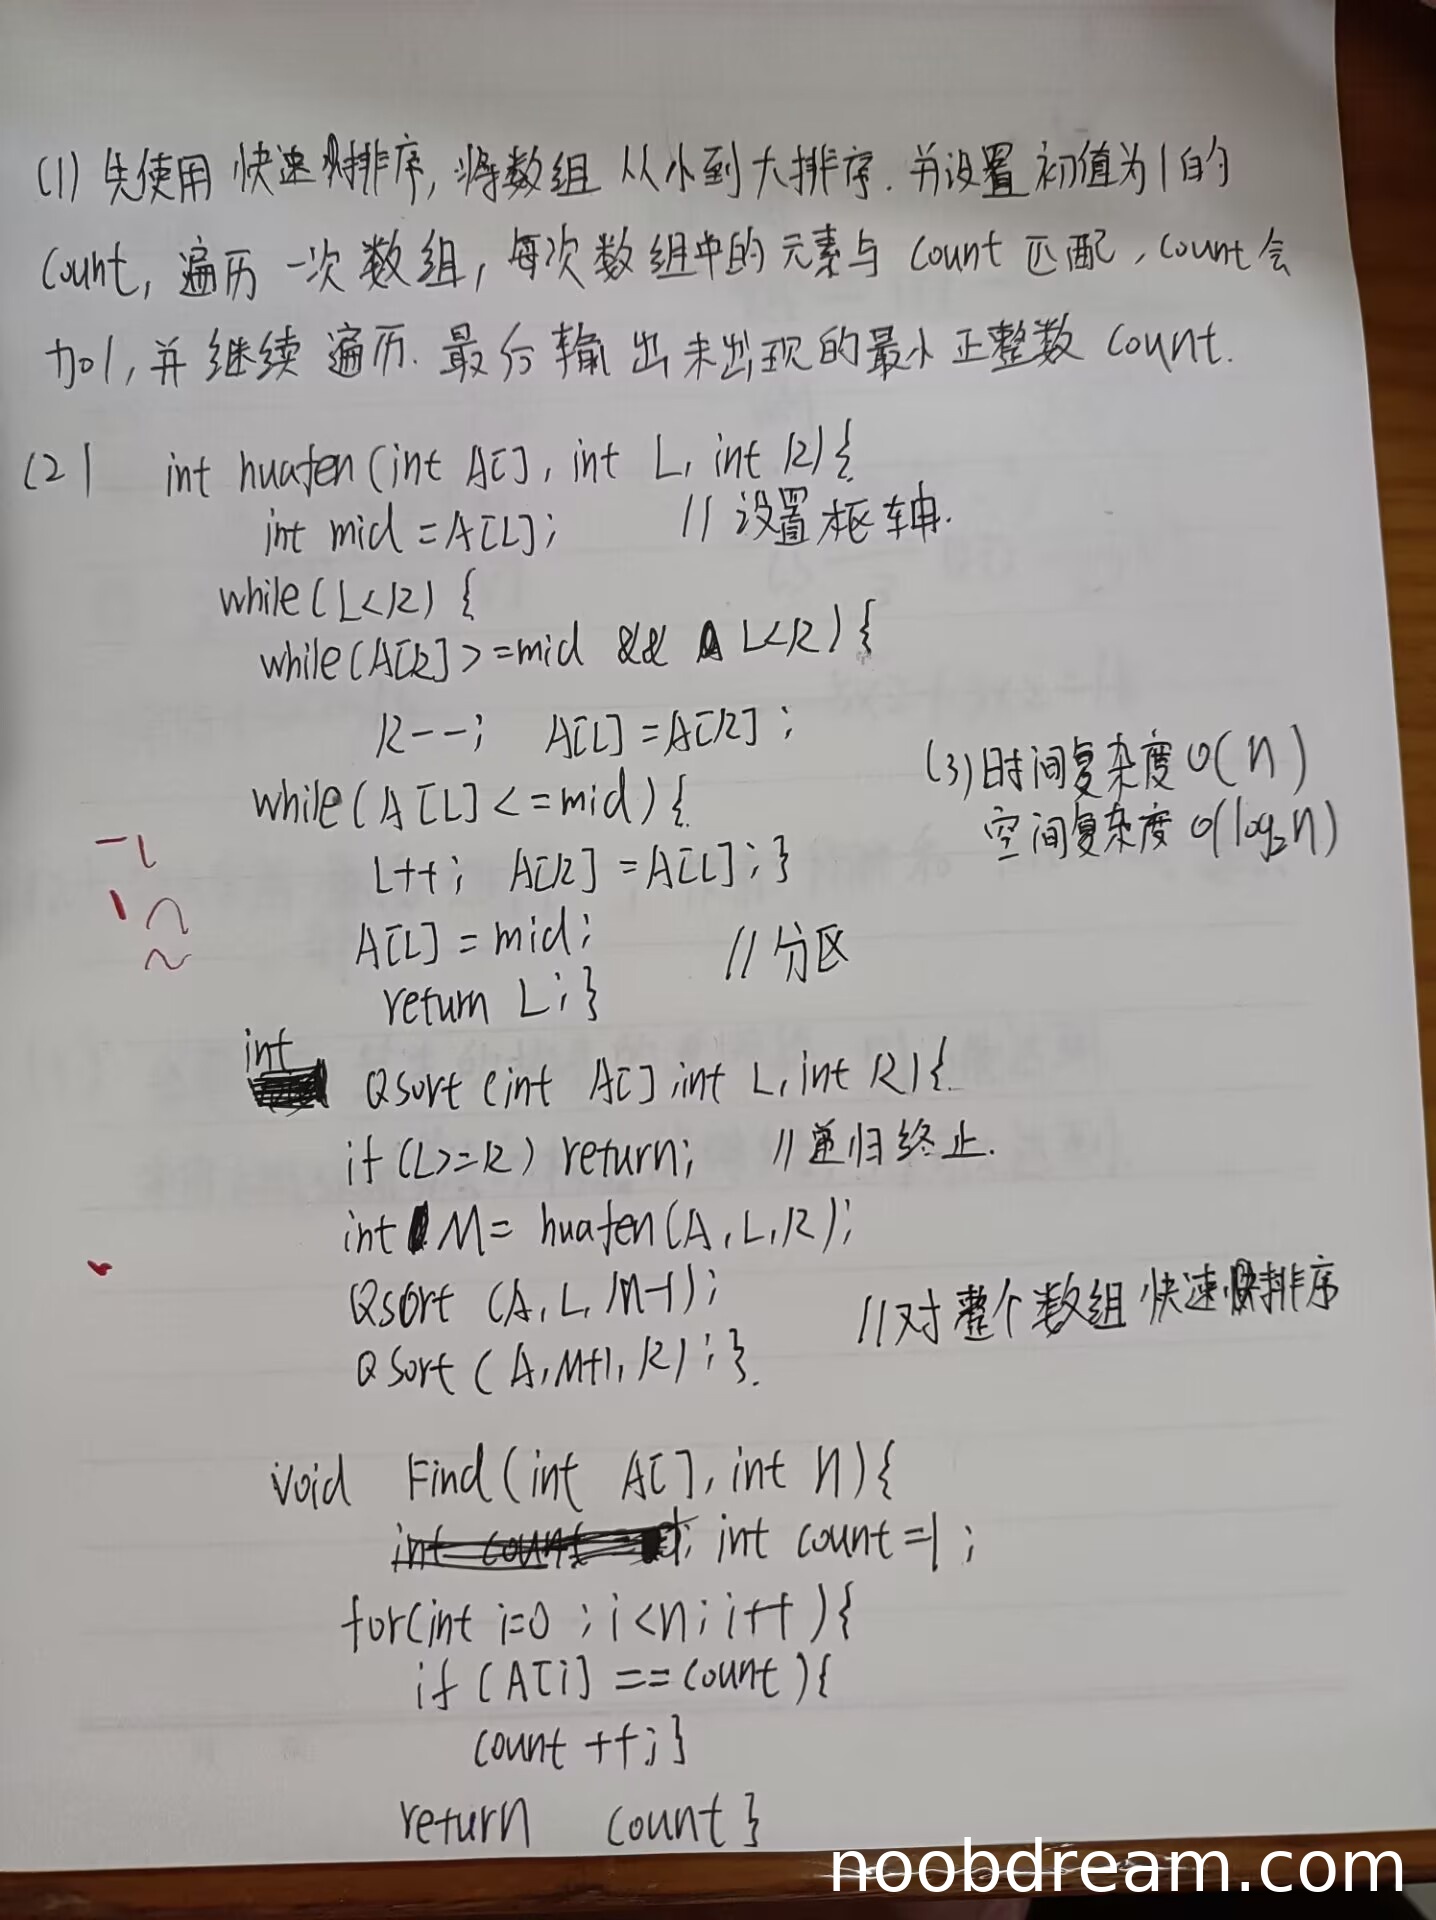 (1) 先使用 快速排序, 将数组 从小到大排序. 并设置 初值为1的
count, 遍历 一次 数组, 每次 数组中的 元素与 count 匹配, count会
加1, 并 继续 遍历. 最后 输 出 未出现的最小 正整数 count.
(2) int huafen(int A[], int L, int R){
int mid = A[L]; // 设置 枢轴.
while(L<R) {
while(A[R]>=mid && L<R){
R--; A[L]=A[R];
while(A[L]<=mid){
L++; A[R]=A[L];}
A[L]=mid; // 分区
return L;}
(3)时间复杂度 O(n)
空间复杂度 O(log₂n)
int Qsort (int A[], int L, int R){
if(L>=R) return; // 递归终止.
int M= huafen(A, L, R);
Qsort (A, L, M-1);
Qsort (A, M+1, R);}
// 对 整个 数组 快速排序
void Find(int A[], int n){
int count=1;
for(int i=0; i<n; i++){
if (A[i]==count){
count++;}
return count}
noobdream.com